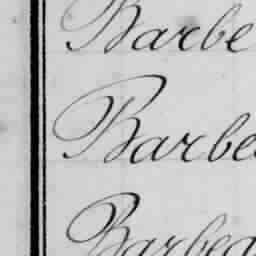 Barbe
Barbe
Barbea